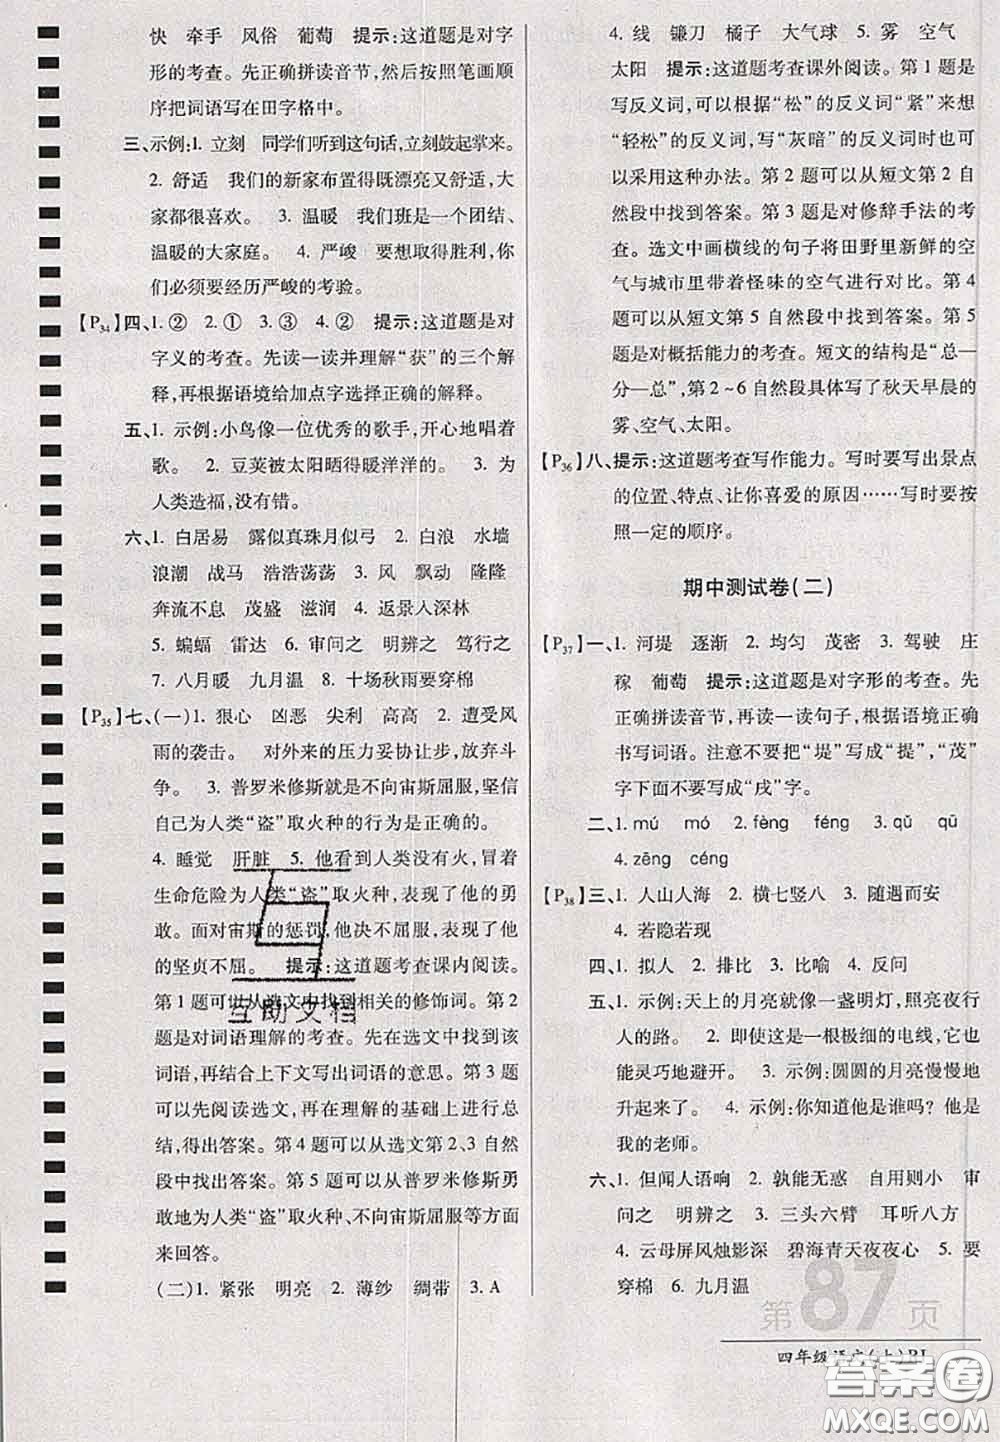 快　牵手　风俗　葡萄　提示:这道题是对字
形的考查。先正确拼读音节,然后按照笔画顺
序把词语写在田字格中。
三、示例:1. 立刻　同学们听到这句话,立刻鼓起掌来。
2. 舒适　我们的新家布置得既漂亮又舒适,大
家都很喜欢。　3. 温暖　我们班是一个团结、
温暖的大家庭。　4. 严峻　要想取得胜利,你
们必须要经历严峻的考验。
【P34】四、1. ②　2. ①　3. ③　4. ②　提示:这道题是对
字义的考查。先读一读并理解“获”的三个解
释,再根据语境给加点字选择正确的解释。
五、1. 示例:小鸟像一位优秀的歌手,开心地唱着
歌。　2. 豆荚被太阳晒得暖洋洋的。　3. 为
人类造福,没有错。
六、1. 白居易　露似真珠月似弓　2. 白浪　水墙
浪潮　战马　浩浩荡荡　3. 风　飘动　隆隆
奔流不息　茂盛　滋润　4. 返景入深林
5. 蝙蝠　雷达　6. 审问之　明辨之　笃行之
7. 八月暖　九月温　8. 十场秋雨要穿棉
【P35】七、(一)1. 狠心　凶恶　尖利　高高　2. 遭受风
雨的袭击。　对外来的压力妥协让步,放弃斗
争。　3. 普罗米修斯就是不向宙斯屈服,坚信
自己为人类“盗”取火种的行为是正确的。
4. 睡觉　肝脏　5. 他看到人类没有火,冒着
生命危险为人类“盗”取火种,表现了他的勇
敢。面对宙斯的惩罚,他决不屈服,表现了他
的坚贞不屈。　提示:这道题考查课内阅读。
第 1 题可以从选文中找到相关的修饰词。第 2
题是对词语理解的考查。先从选文中找到该
词语,再结合上下文写出词语的意思。第 3 题
可以先阅读选文,再在理解的基础上进行总
结,得出答案。第 4 题可以从选文第2、3 自然
段中找出答案。第 5 题可以从普罗米修斯勇
敢地为人类“盗”取火种,不向宙斯屈服等方面
来回答。
(二)1. 紧张　明亮　2. 薄纱　绸带　3. A
4. 线　镰刀　橘子　大气球　5. 雾　空气
太阳　提示:这道题考查课外阅读。第 1 题是
写反义词,可以根据“松”的反义词“紧”来想
“轻松”的反义词,写“灰暗”的反义词时,也可
以采用这种办法。第 2 题可以从短文第 2 自
然段中找到答案。第 3 题是对修辞手法的考
查。选文中画横线的句子将田野里新鲜的空
气与城市里带着怪味的空气进行对比。第 4
题可以从短文第 5 自然段中找到答案。第 5
题是对概括能力的考查。短文的结构是“总—
分—总”,第 2~6 自然段具体写了秋天早晨的
雾、空气、太阳。
【P36】八、提示:这道题考查写作能力。写时要写出景点
的位置、特点、让你喜爱的原因……写时要按
照一定的顺序。
期中测试卷(二)
【P37】一、1. 河堤　逐渐　2. 均匀　茂密　3. 驾驶　庄
稼　葡萄　提示:这道题是对字形的考查。先
正确拼读音节,再读一读句子,根据语境正确
书写词语。注意不要把“堤”写成“提”,“茂”
字下面不要写成“戌”字。
二、1. mú　mó　2. fèng　féng　3. qǔ　qū
4. zēng　céng
【P38】三、1. 人山人海　2. 横七竖八　3. 随遇而安
4. 若隐若现
四、1. 拟人　2. 排比　3. 比喻　4. 反问
五、1. 示例:天上的月亮就像一盏明灯,照亮夜行
人的路。　2. 即使这是一根极细的电线,它也
能灵巧地避开。　3. 示例:圆圆的月亮慢慢地
升起来了。　4. 示例:你知道他是谁吗?他是
我的老师。
六、1. 但闻人语响　2. 孰能无惑　自用则小　审
问之　明辨之　3. 三头六臂　耳听八方
4. 云母屏风烛影深　碧海青天夜夜心　5. 要
穿棉　6. 九月温
第87页
四年级语文(上)RJ
互助文档
答案圈
MXQE.COM